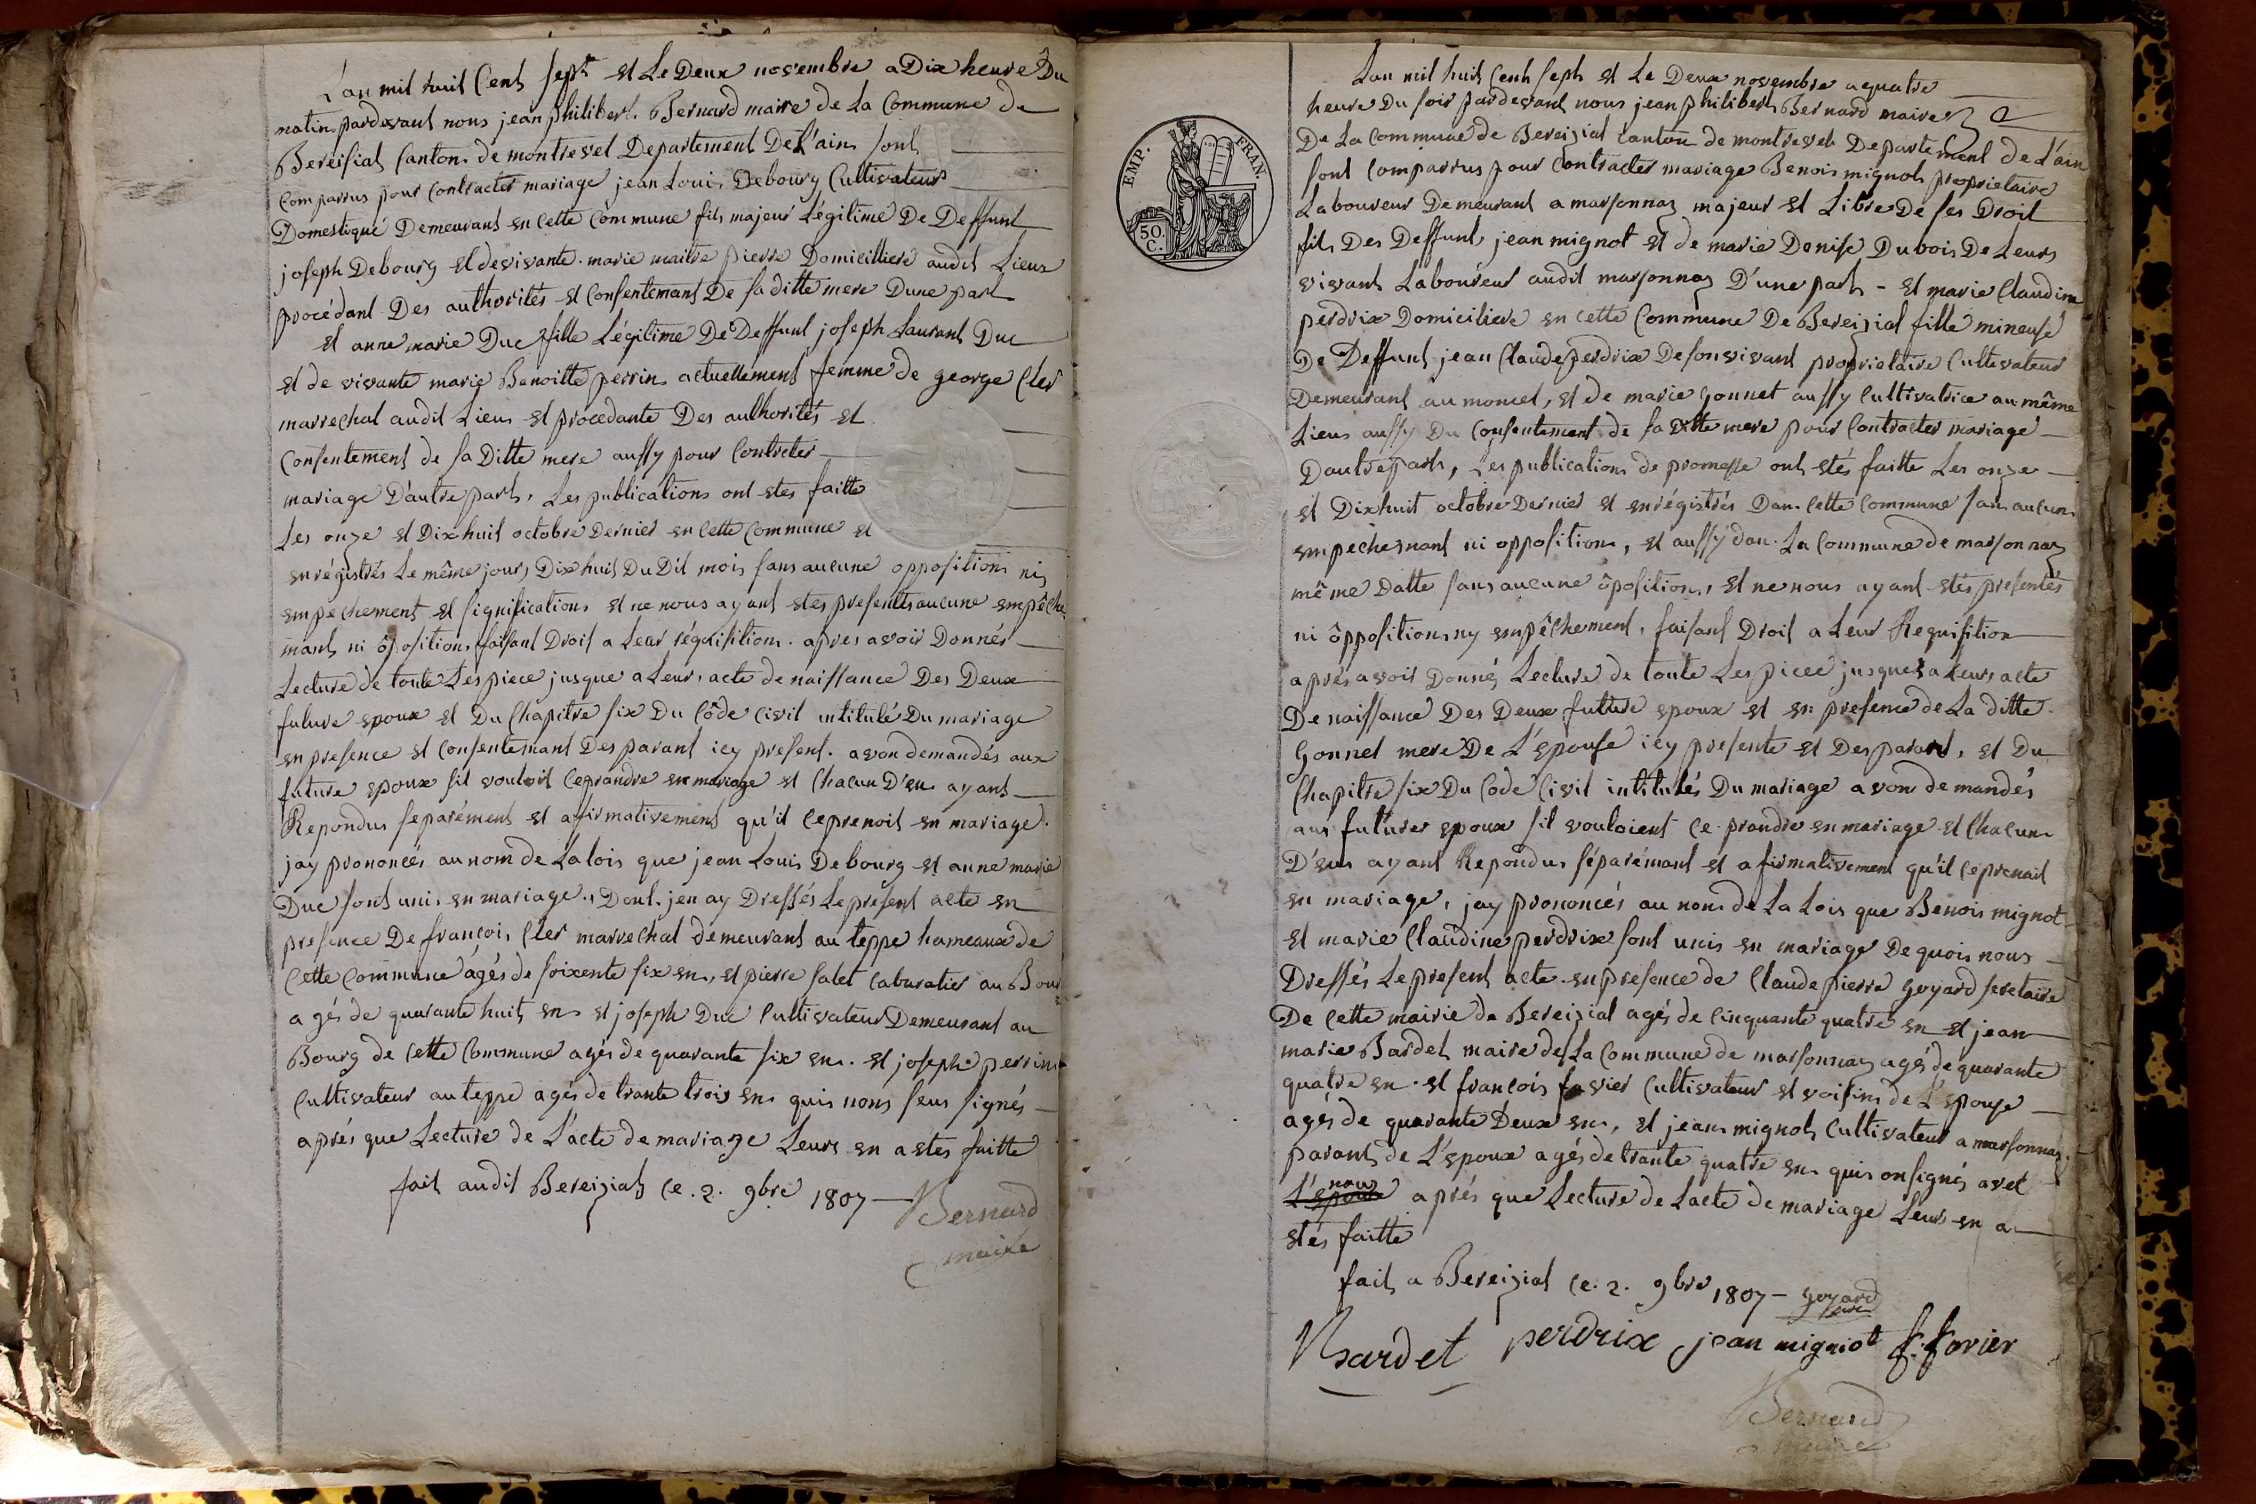 L'an mil huit Cent sept et Le Deux novembre a Dix heure Du
matin pardevant nous jean philibert Bernard maire de La Commune de
Bereisial Canton de montrevel Departement De l'ain sont
Comparrus pour Contracter mariage jean Louis Debourg Cultivateur
Domestique Demeurant en Cette Commune fils majeur Légitime De Deffunt
joseph Debourg et de vivante marie maitre pierre Domicilliere audit Lieux
procédant Des authorités et Consentemant De sa ditte mere Dune part
et anne marie Duc fille Légitime De Deffunt joseph Laurant Duc
et de vivante marie Benoitte perrin actuellement femme de george Cler
marrechal audit Lieu et procedante Des authorités et
Consentement de sa Ditte mere aussy pour Contrcter
mariage D'autre part, Les publications ont etes faitte
Les onze et Dixhuit octobre Dernier en Cette Commune et
enrégistrés Le même jour Dixhuit Du Dit mois sans aucune oppositions ni
empechement et significations et ne nous ayant etes presentés aucune empêche
mant ni ôposition, faisant Droit a Leur réquisition. apres avoir Donnés
Lecture de toute Les piece jusque a Leurs acte de naissance Des Deux
future epoux et Du Chapitre six Du Côde Civil intitulé Du mariage
en presence et Consentemant Des parant icy present. avon demandés aux
future epoux sil vouloit Ceprandre en mariage et Chacun D'eu ayant
Repondus separément et afirmativement qu'il Ceprenoit en mariage.
jay prononcés au nom de La lois que jean Louis Debourg et anne marie
Duc sont unis en mariage, Dont jen ay Dressés Le present acte en
presence De francois Cler marrechal demeurant au teppe hameaux de
Cette Commune âgés de soixente six en, et pierre salet Cabaratier au Bour
agés de quarante huit en et joseph Duc Cultivateur Demeurant au
Bourg de Cette Commune agés de quarante six en. et joseph perrin
Cultivateur au teppe agés de trante trois en quis nons seus signés
après que Lecture de L'acte de mariage Leurs en a etes faitte
fait audit Bereizial Ce. 2. 9bre 1807 Bernard
maire
EMP. FRAN.
50. C.
Lan mil huit Cent sept et Le Deux novembre a quatre
heure Du soir pardevant nous jean philibert Bernard maire
De La Commune de Bereizial Canton de montrevel Departement de L'ain
sont Comparrus pour Contracter mariage Benois mignot proprietaire
Laboureur Demeurant a marsonnaz majeur et Libre De ses Droit
fils Des Deffunt jean mignot et de marie Denise Dubois De Leurs
vivant Laboureur audit marsonnaz D'une part - et marie Claudine
perdrix Domiciliere en Cette Commune De Bereizial fille mineuse
De Deffunt jean Claude perdrix De son vivant proprietaire Cultivateur
Demeurant au moncel, et de marie gonnet aussy Cultivatrice au même
Lieu aussy Du Consentement de sa Ditte mere pour Contracter mariage
Dautre part, Les publications de promesse ont etés faitte Les onze
et Dixhuit octobre Dernier et enrégistrés Dans Cette Commune sans aucun
empechemant ni opposition, et aussy dan La Commune de marsonnaz
même Datte sans aucune ôposition, et ne nous ayant etés presentés
ni ôppositions ny empêchement, faisant Droit a Leur Requisition
après avoir Donnés Lecture de toute Les picee jusques a Leurs acte
De naissance Des Deux future epoux et en presence de La ditte
Gonnet mere De L'epouse icy presente et Des parant, et Du
Chapitre six Du Côde Civil intitulés Du mariage avon demandés
aux futures epoux sil vouloient Ce prandre en mariage et Chacun
D'eus ayant Repondus séparémant et afirmativement qu'il Ceprenait
en mariage, jay prononcés au nom de La Lois que Benois mignot
et marie Claudine perdrix sont unis en mariage De quois nous
Dressés Le present acte en presence de Claude pierre goyard sécretaire
De Cette mairie de Bereizial agés de cinquante quatre en et jean
marie Bardet maire de La Commune de marsonnaz agés de quarante
quatre en et francois favier Cultivateur et voisin de L'epouse
agés de quarante Deux en, et jean mignot Cultivateur a marsonnaz
parant de L'epoux agés de trante quatre en quis onsignés avec
L'epouse nous après que Lecture de L'acte de mariage Leurs en a
etés faitte
fait a Bereizial Ce. 2. 9bre 1807 - goyard
Bardet perdrix jean migniot f. favier
Bernard
maire